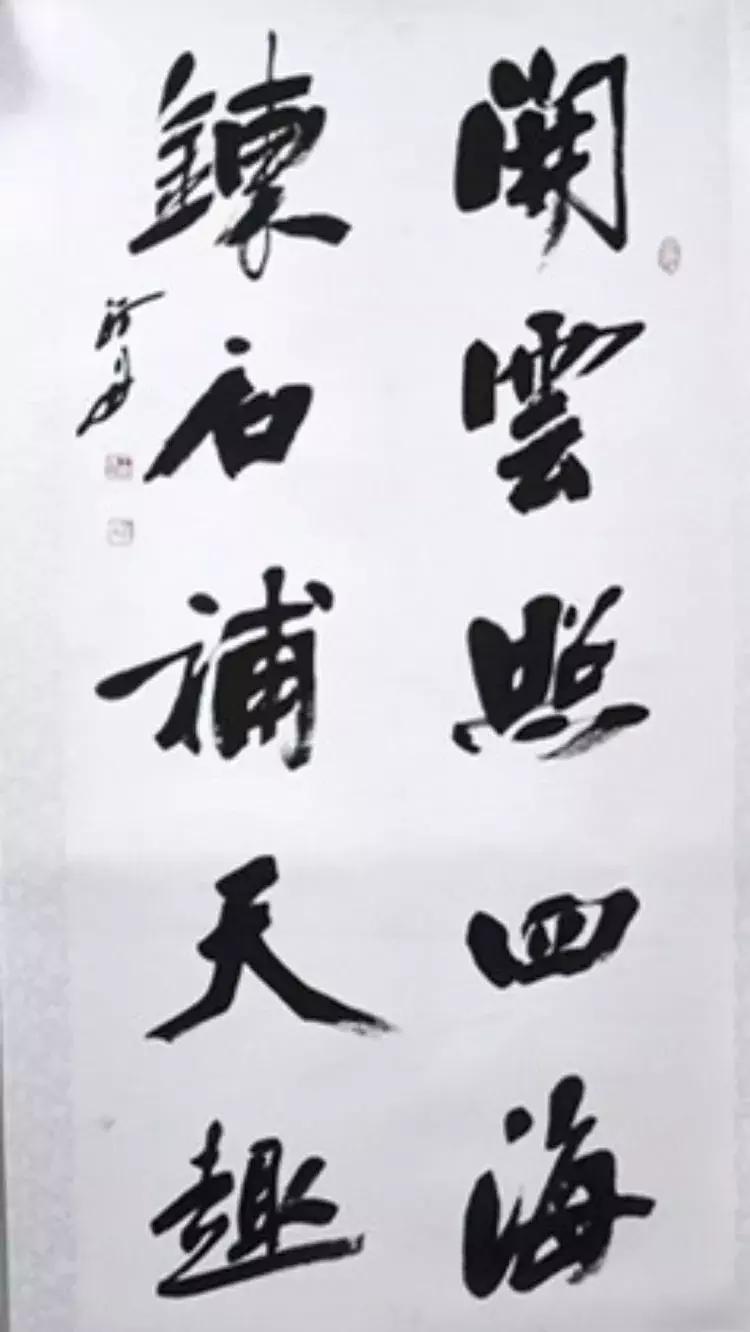 開雲照四海
鍊石補天趣